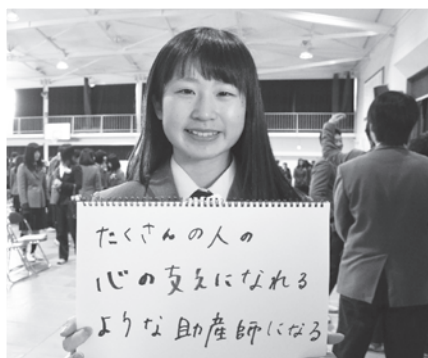 たくさんの人の
心の支えになれる
ような助産師になる